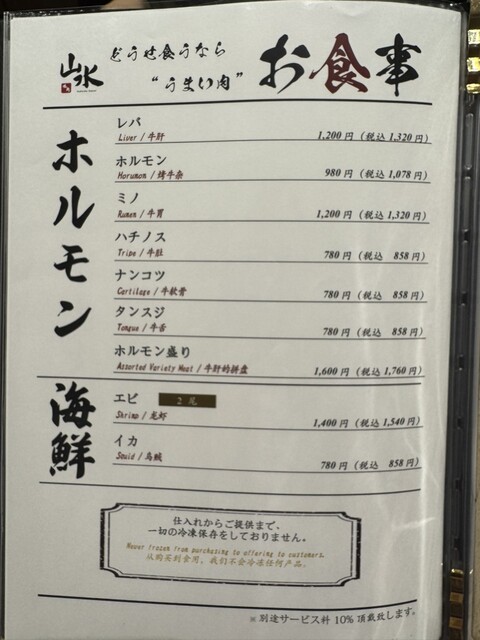 山水
どうせ食うなら
“うまい肉”
お食事
ホルモン
レバ
Liver / 牛肝
1,200 円 (税込 1,320 円)
ホルモン
Horumon / 烤牛杂
980 円 (税込 1,078 円)
ミノ
Rumen / 牛胃
1,200 円 (税込 1,320 円)
ハチノス
Tripe / 牛肚
780 円 (税込 858 円)
ナンコツ
Cartilage / 牛軟骨
780 円 (税込 858 円)
タンスジ
Tongue / 牛舌
780 円 (税込 858 円)
ホルモン盛り
Assorted Variety Meat / 牛肝的拼盘
1,600 円 (税込 1,760 円)
海鮮
エビ 2 尾
Shrimp / 龙虾
1,400 円 (税込 1,540 円)
イカ
Squid / 乌贼
780 円 (税込 858 円)
仕入れからご提供まで、
一切の冷凍保存をしておりません。
Never frozen from purchasing to offering to customers.
从购买到食用，我们不会冷冻任何产品。
※ 別途サービス料 10% 頂戴致します。